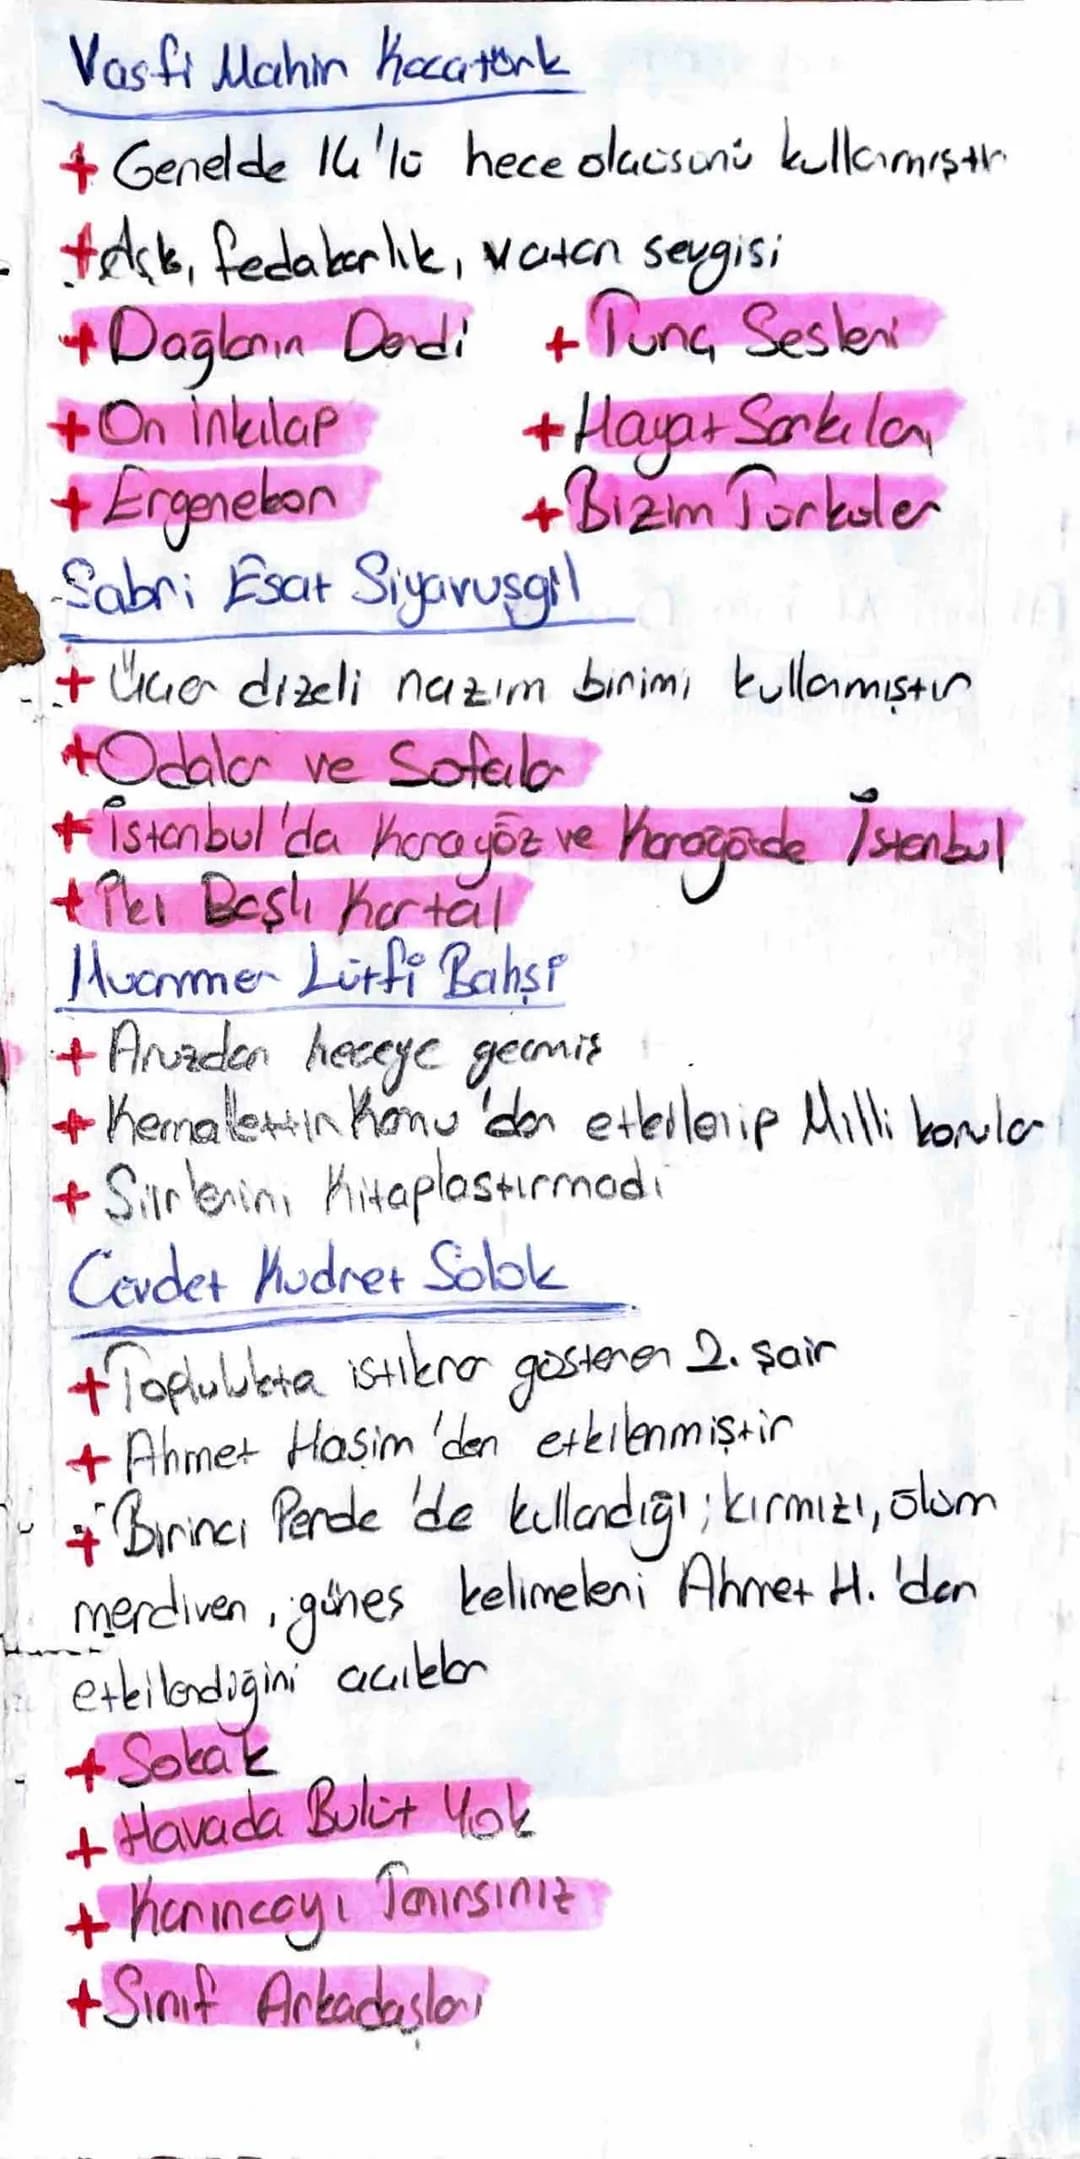 Vasfi Mahir Kocatürk
+ Genelde 14'lü hece ölçüsünü kullanmıştır
+ Aşk, fedakarlık, vatan sevgisi
+ Dağların Derdi + Tunç Sesleri
+ On İnkılap + Hayat Şarkıları
+ Ergenekon + Bizim Türküler
Sabri Esat Siyavuşgil
+ Üçer dizeli nazım birimi kullanmıştır
+ Odalar ve Sofalar
+ İstanbul'da Karagöz ve Karagözde İstanbul
+ İki Başlı Kartal
Muammer Lütfi Bahşi
+ Aruzdan heceye geçmiş
+ Kemalettin Kamu'dan etkilenip Milli konular
+ Şiirlerini Kitaplaştırmadı
Cevdet Kudret Solok
+ Toplulukta istikrar gösteren 2. şair
+ Ahmet Haşim'den etkilenmiştir
+ Birinci Perde'de kullandığı; kırmızı, ölüm
merdiven, güneş kelimeleri Ahmet H.'den
etkilendiğini açıklar
+ Sokak
+ Havada Bulut Yok
+ Karıncayı Tanırsınız
+ Sınıf Arkadaşları